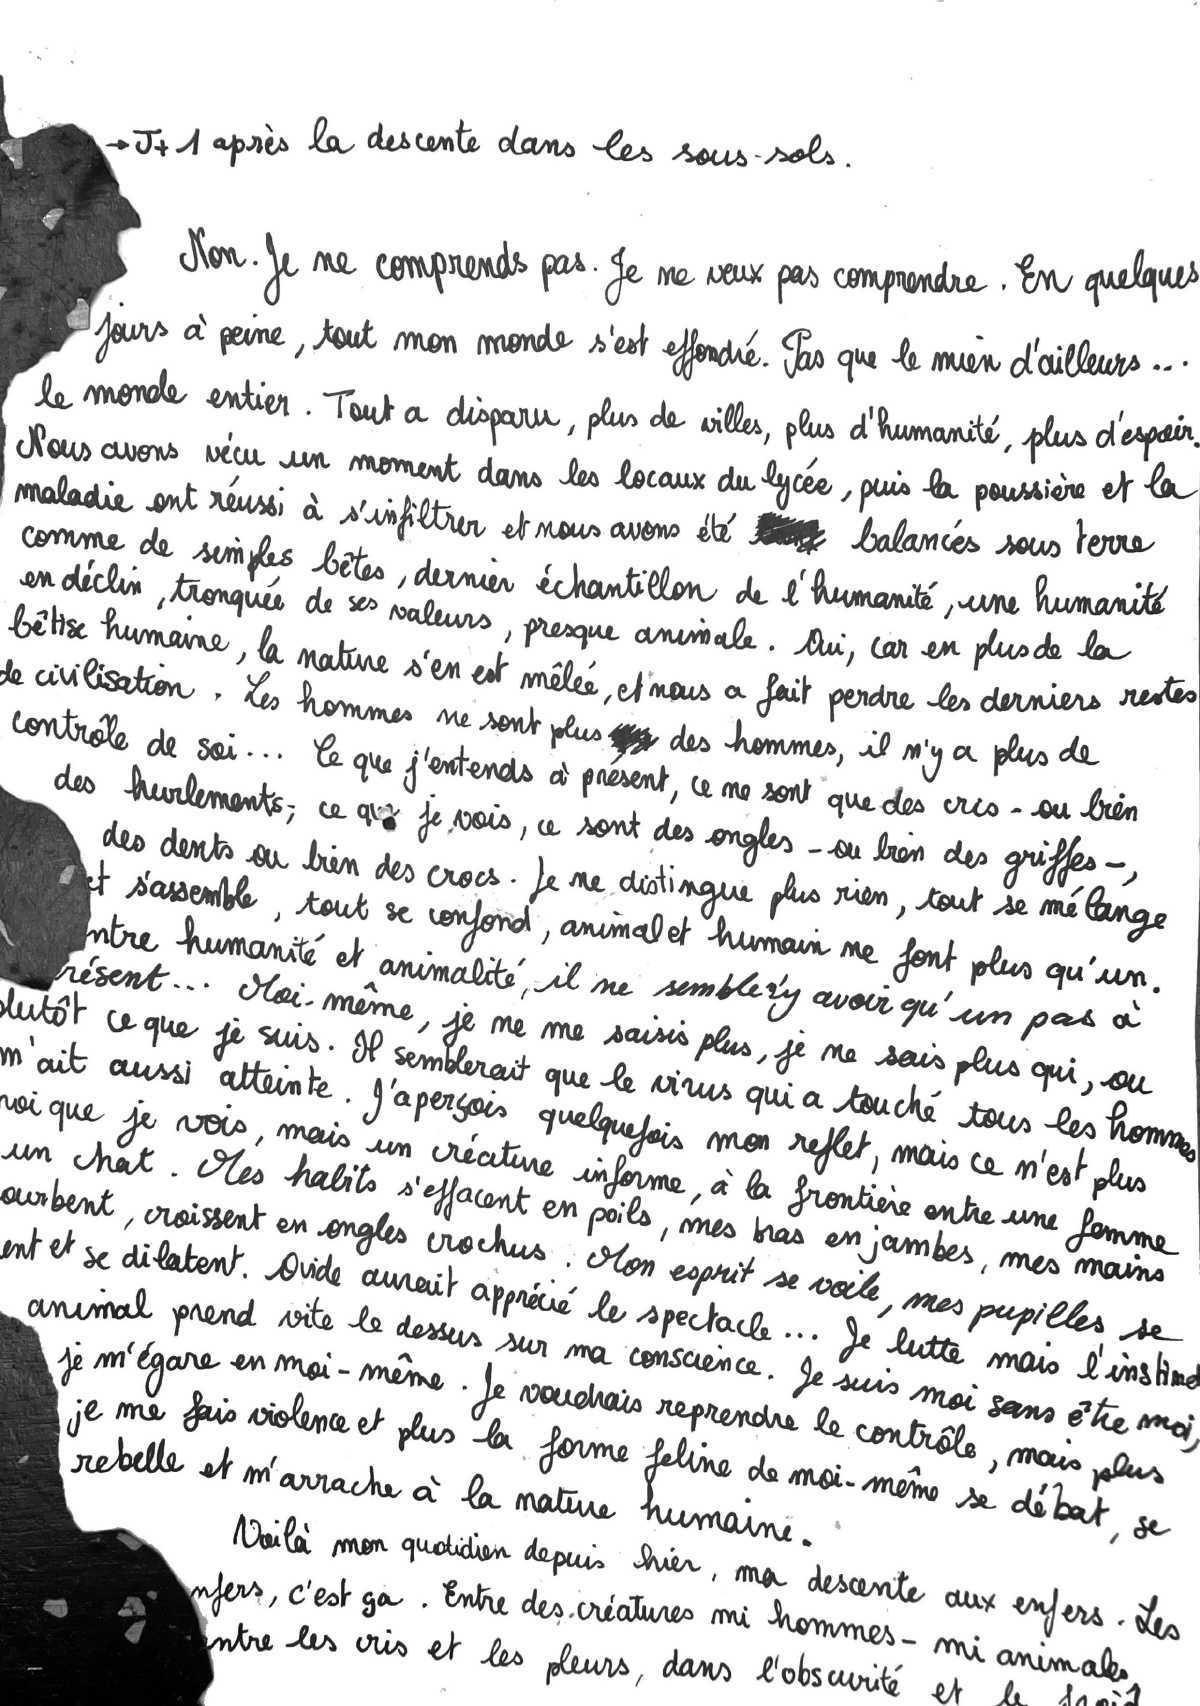 → J+1 après la descente dans les sous-sols.
Non. Je ne comprends pas. Je ne veux pas comprendre. En quelques
jours à peine, tout mon monde s'est effondré. Pas que le mien d'ailleurs...
le monde entier. Tout a disparu, plus de villes, plus d'humanité, plus d'espoir.
Nous avons vécu un moment dans les locaux du lycée, puis la poussière et la
maladie ont réussi à s'infiltrer et nous avons été balancés sous terre
comme de simples bêtes, dernier échantillon de l'humanité, une humanité
en déclin, tronquée de ses valeurs, presque animale. Oui, car en plus de la
bêtise humaine, la nature s'en est mêlée, et nous a fait perdre les derniers restes
de civilisation. Les hommes ne sont plus des hommes, il n'y a plus de
contrôle de soi... Ce que j'entends à présent, ce ne sont que des cris - ou bien
des hurlements; ce que je vois, ce sont des ongles - ou bien des griffes -,
des dents ou bien des crocs. Je ne distingue plus rien, tout se mélange
et s'assemble, tout se confond, animal et humain ne font plus qu'un.
ntre humanité et animalité, il ne semble n'y avoir qu'un pas à
résent... Moi-même, je ne me saisis plus, je ne sais plus qui, ou
plutôt ce que je suis. Il semblerait que le virus qui a touché tous les hommes
m'ait aussi atteinte. J'aperçois quelquefois mon reflet, mais ce n'est plus
moi que je vois, mais un créature informe, à la frontière entre une femme
un chat. Mes habits s'effacent en poils, mes bras en jambes, mes mains
ourbent, croissent en ongles crochus. Mon esprit se voile, mes pupilles se
ent et se dilatent. Ovide aurait apprécié le spectacle... Je lutte mais l'instinct
animal prend vite le dessus sur ma conscience. Je suis moi sans être moi,
je m'égare en moi-même. Je voudrais reprendre le contrôle, mais plus
je me fais violence et plus la forme féline de moi-même se débat, se
rebelle et m'arrache à la nature humaine.
Voilà mon quotidien depuis hier, ma descente aux enfers. Les
nfers, c'est ça. Entre des créatures mi hommes - mi animales,
entre les cris et les pleurs, dans l'obscurité et le froid